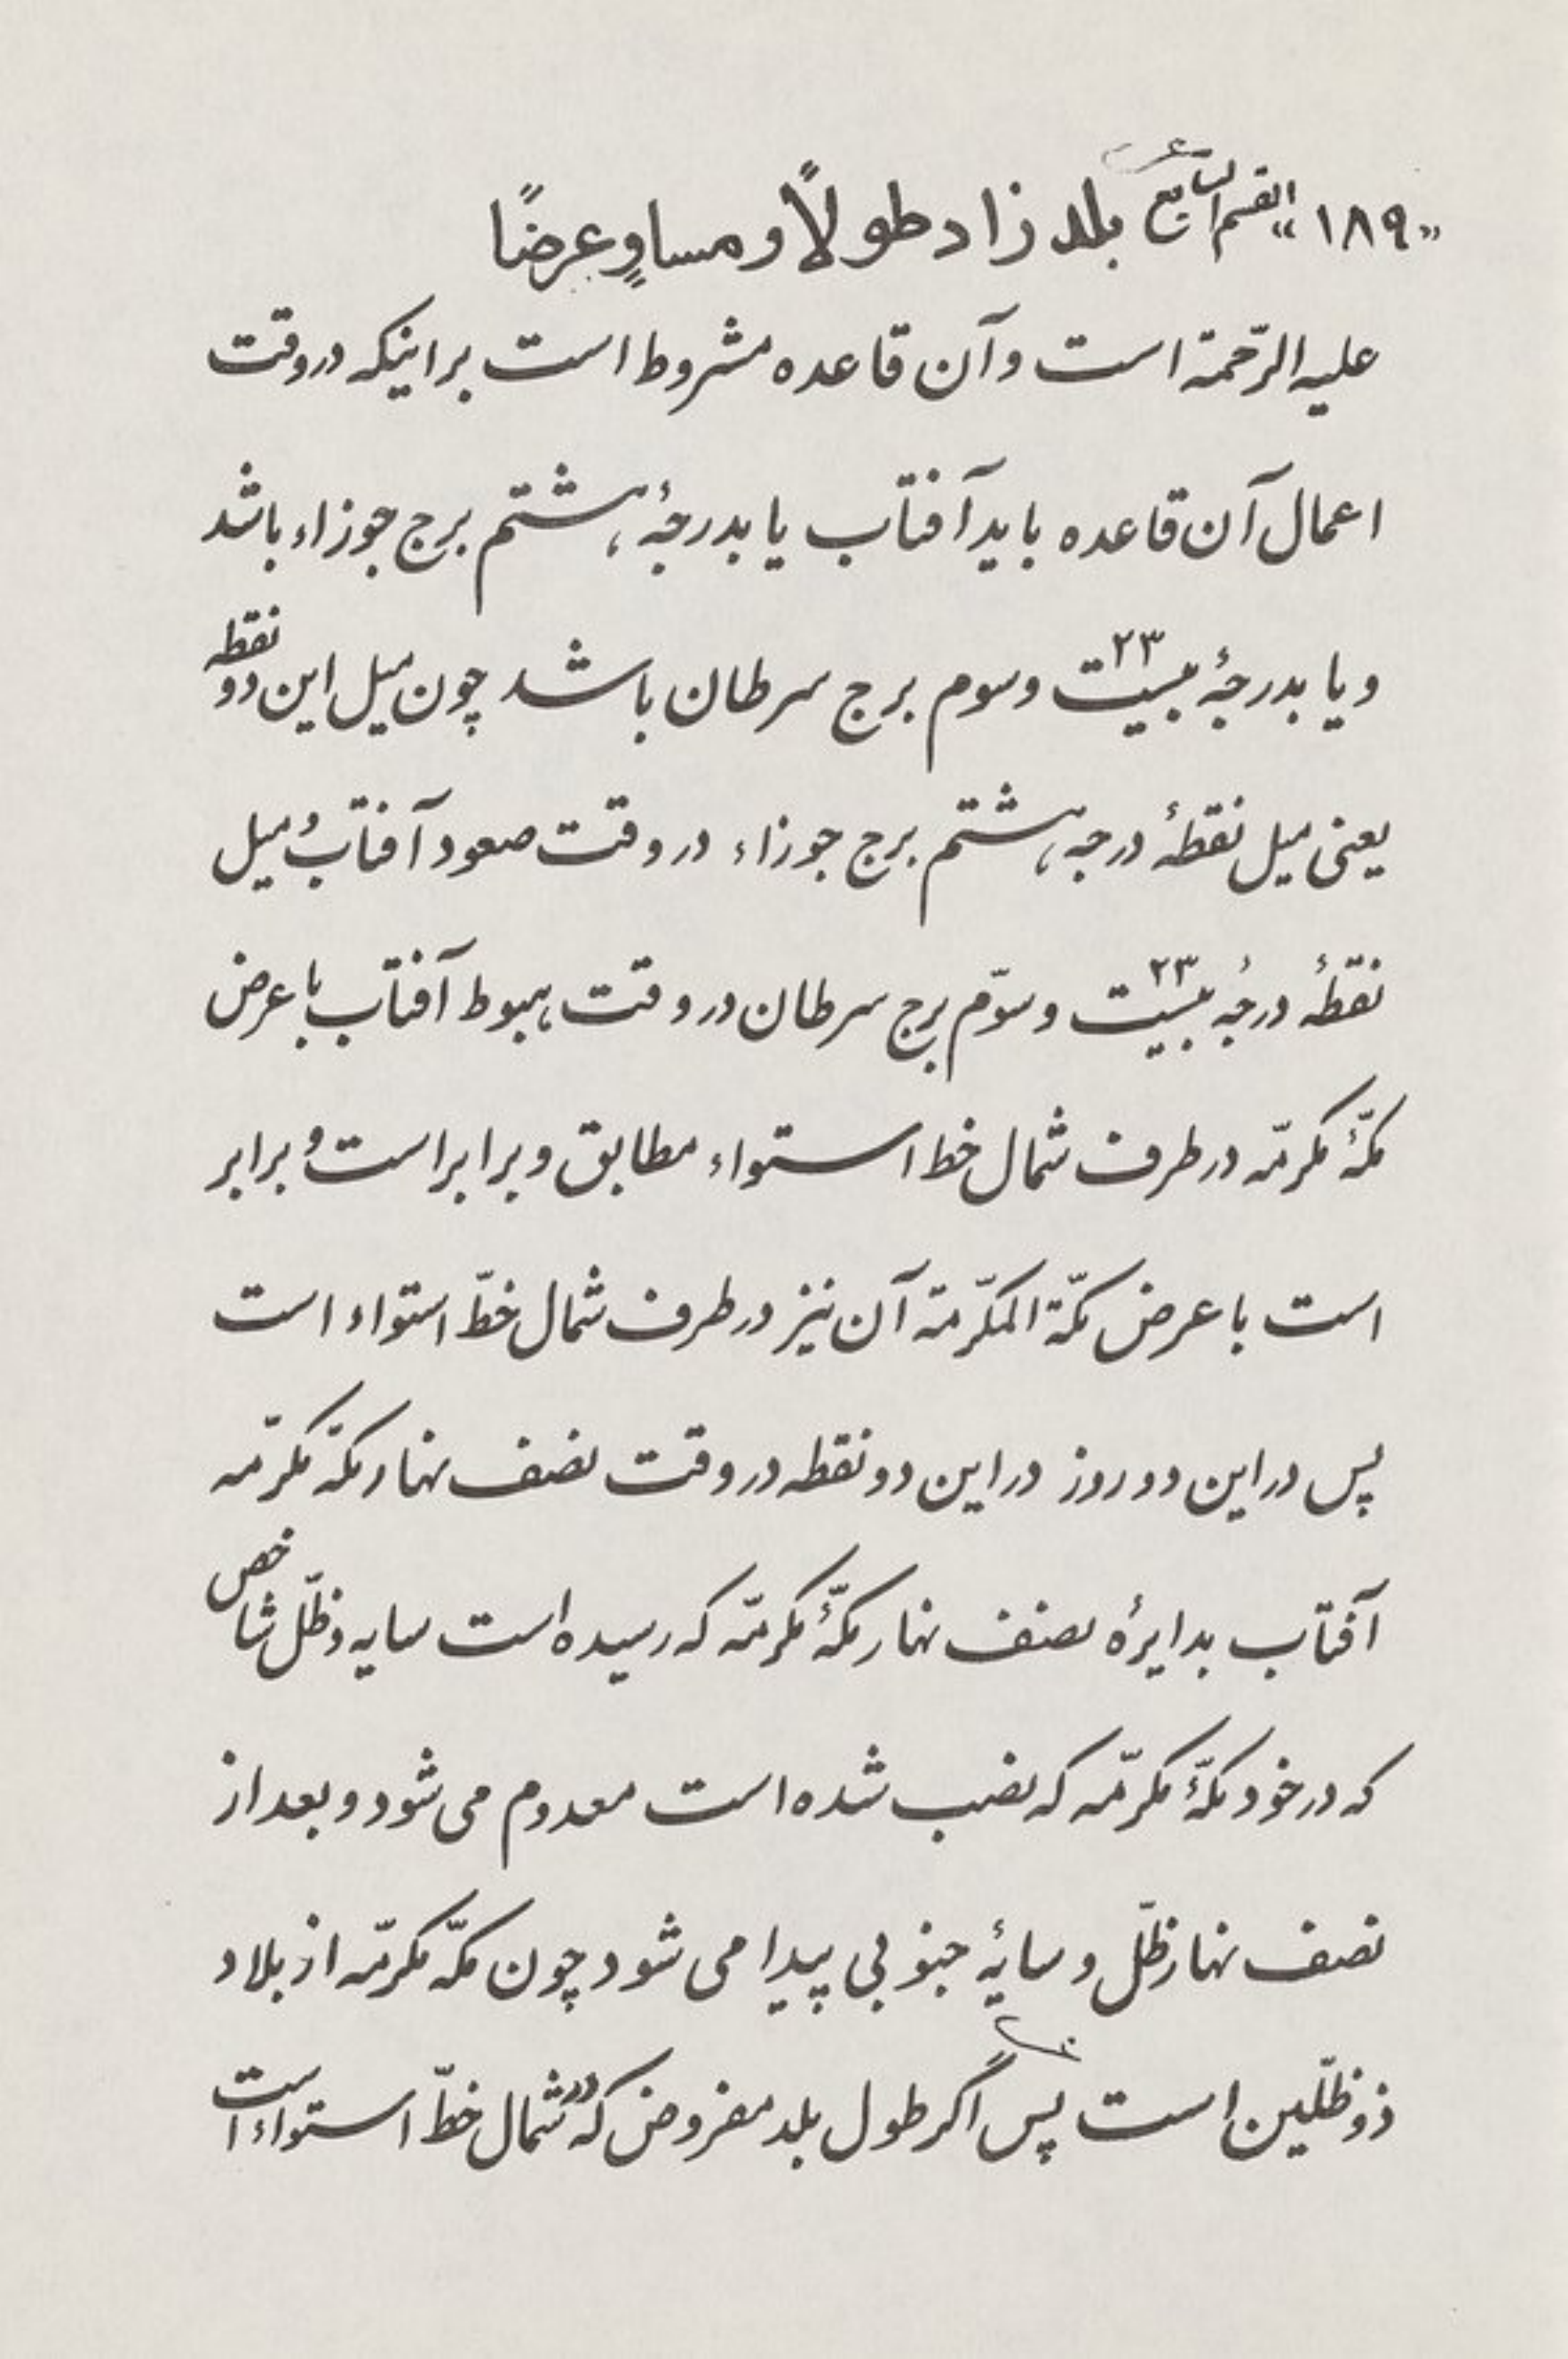 «۱۸۹» القسم السابع بلد زاد طولاً و مساوٍ عرضًا
علیه الرّحمة است و آن قاعده مشروط است براینکه در وقت
اعمال آن قاعده باید آفتاب یا بدرجۀ هشتم برج جوزاء باشد
و یا بدرجۀ بیست ۲۳ وسوم برج سرطان باشد چون میل این دو نقطه
یعنی میل نقطۀ درجه هشتم برج جوزاء در وقت صعود آفتاب و میل
نقطۀ درجۀ بیست ۲۳ وسوّم برج سرطان در وقت هبوط آفتاب با عرض
مکّۀ مکرمّه در طرف شمال خط استواء مطابق و برابر است و برابر
است با عرض مکّة المکرّمة آن نیز در طرف شمال خطّ استواء است
پس در این دو روز در این دو نقطه در وقت نصف نهار مکّۀ مکرمّه
آفتاب بدایرۀ نصف نهار مکّۀ مکرمّه که رسیده است سایه و ظلّ شاخص
که در خود مکّۀ مکرمّه که نصب شده است معدوم می شود و بعد از
نصف نهار ظلّ و سایۀ جنوبی پیدا می شود چون مکّه مکرمّه از بلاد
ذو ظلّین است پس اگر طول بلد مفروض که در شمال خطّ استواء است